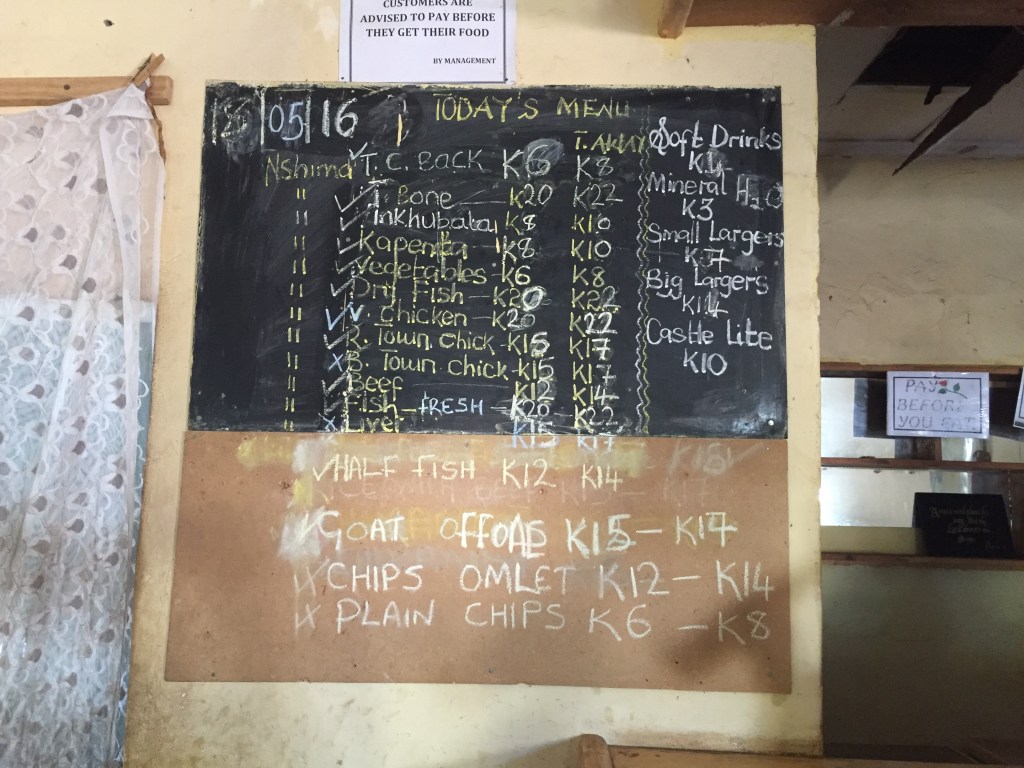 CUSTOMERS ARE
ADVISED TO PAY BEFORE
THEY GET THEIR FOOD
BY MANAGEMENT
18/05/16 TODAY'S MENU
T. AWAY
Nshima T.C. BACK K6 K8
" T. Bone K20 K22
" Inkhubala K8 K10
" Kapenta K8 K10
" Vegetables K6 K8
" Dry Fish - K20 K22
" Chicken - K20 K22
" R. Town chick - K15 K17
" B. Town chick - K15 K17
" Beef K12 K14
" Fish - FRESH - K20 - K22
" Liver K15 K17
Soft Drinks
K4
Mineral H2O
K3
Small Largers
K7
Big Largers
K14
Castle Lite
K10
HALF FISH K12 K14
GOAT OFFOAS K15 - K17
CHIPS OMLET K12 - K14
PLAIN CHIPS K6 - K8
PAY
BEFORE
YOU EAT